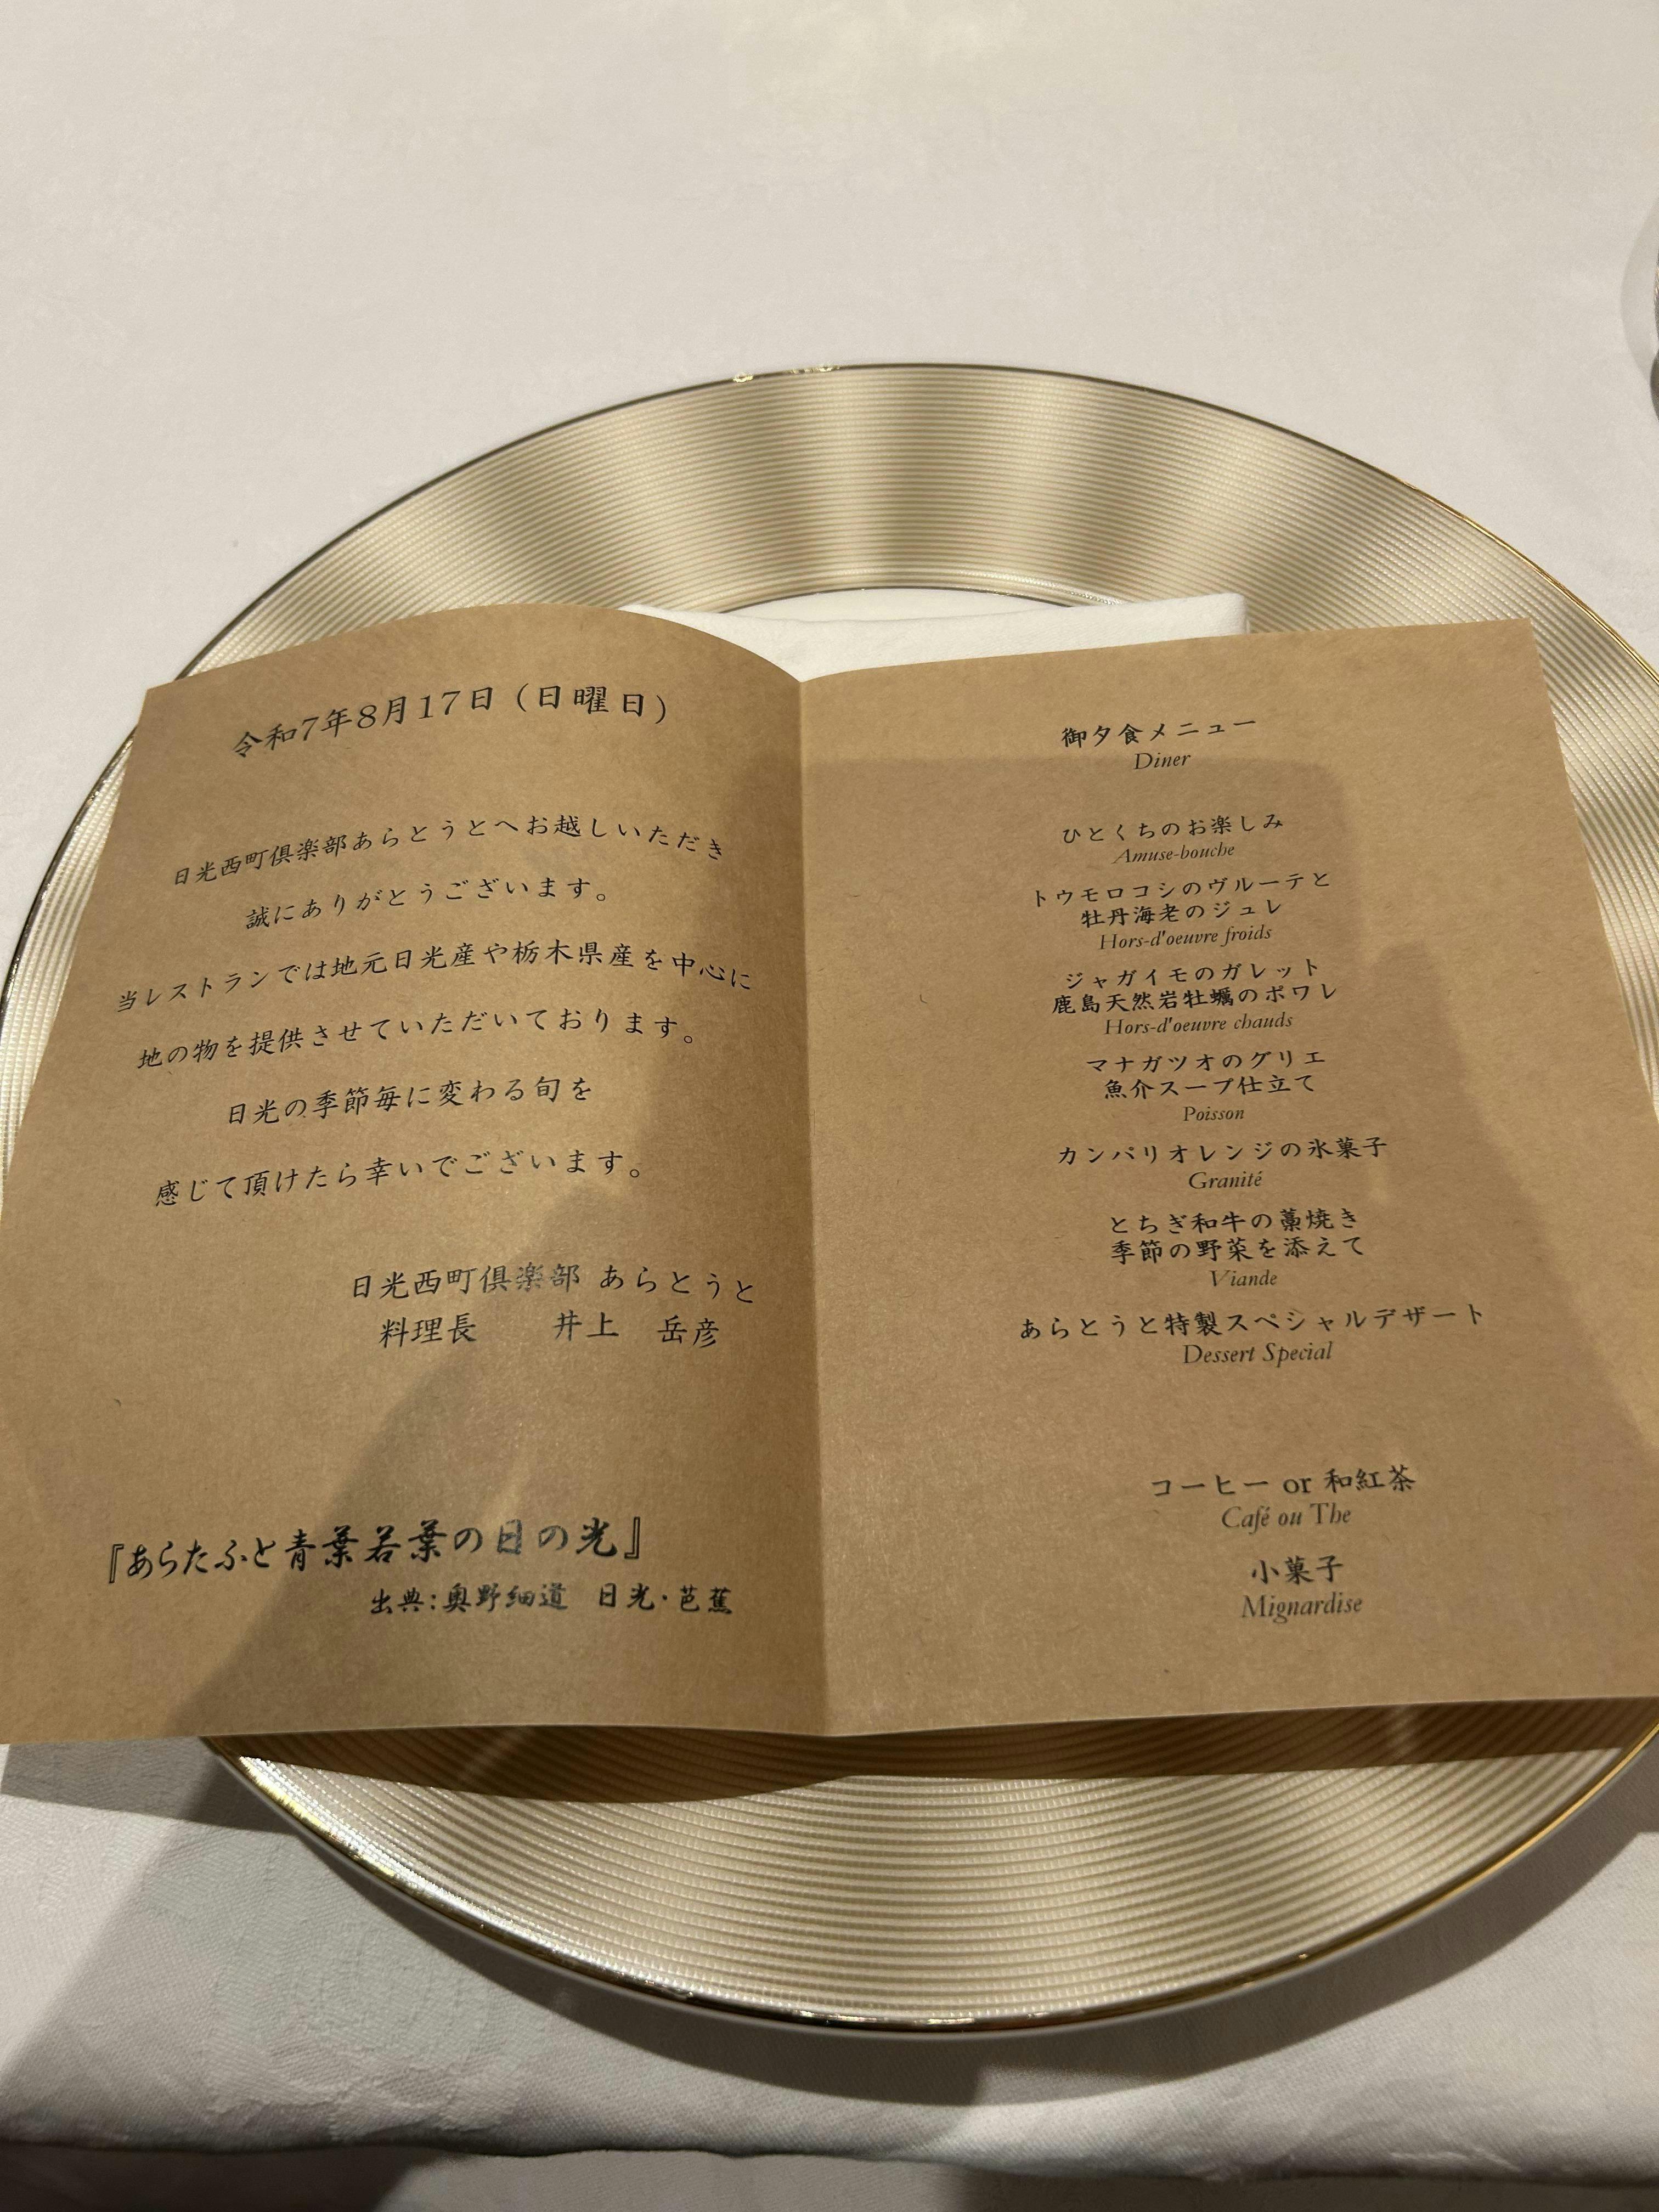 令和7年8月17日（日曜日）
日光西町倶楽部あらとうとへお越しいただき
誠にありがとうございます。
当レストランでは地元日光産や栃木県産を中心に
地の物を提供させていただいております。
日光の季節毎に変わる旬を
感じて頂けたら幸いでございます。
日光西町倶楽部 あらとうと
料理長　井上　岳彦
『あらたふと青葉若葉の日の光』
出典：奥野細道　日光・芭蕉
御夕食メニュー
Diner
ひとくちのお楽しみ
Amuse-bouche
トウモロコシのヴルーテと
牡丹海老のジュレ
Hors-d'oeuvre froids
ジャガイモのガレット
鹿島天然岩牡蠣のポワレ
Hors-d'oeuvre chauds
マナガツオのグリエ
魚介スープ仕立て
Poisson
カンパリオレンジの氷菓子
Granité
とちぎ和牛の藁焼き
季節の野菜を添えて
Viande
あらとうと特製スペシャルデザート
Dessert Special
コーヒー or 和紅茶
Café ou The
小菓子
Mignardise